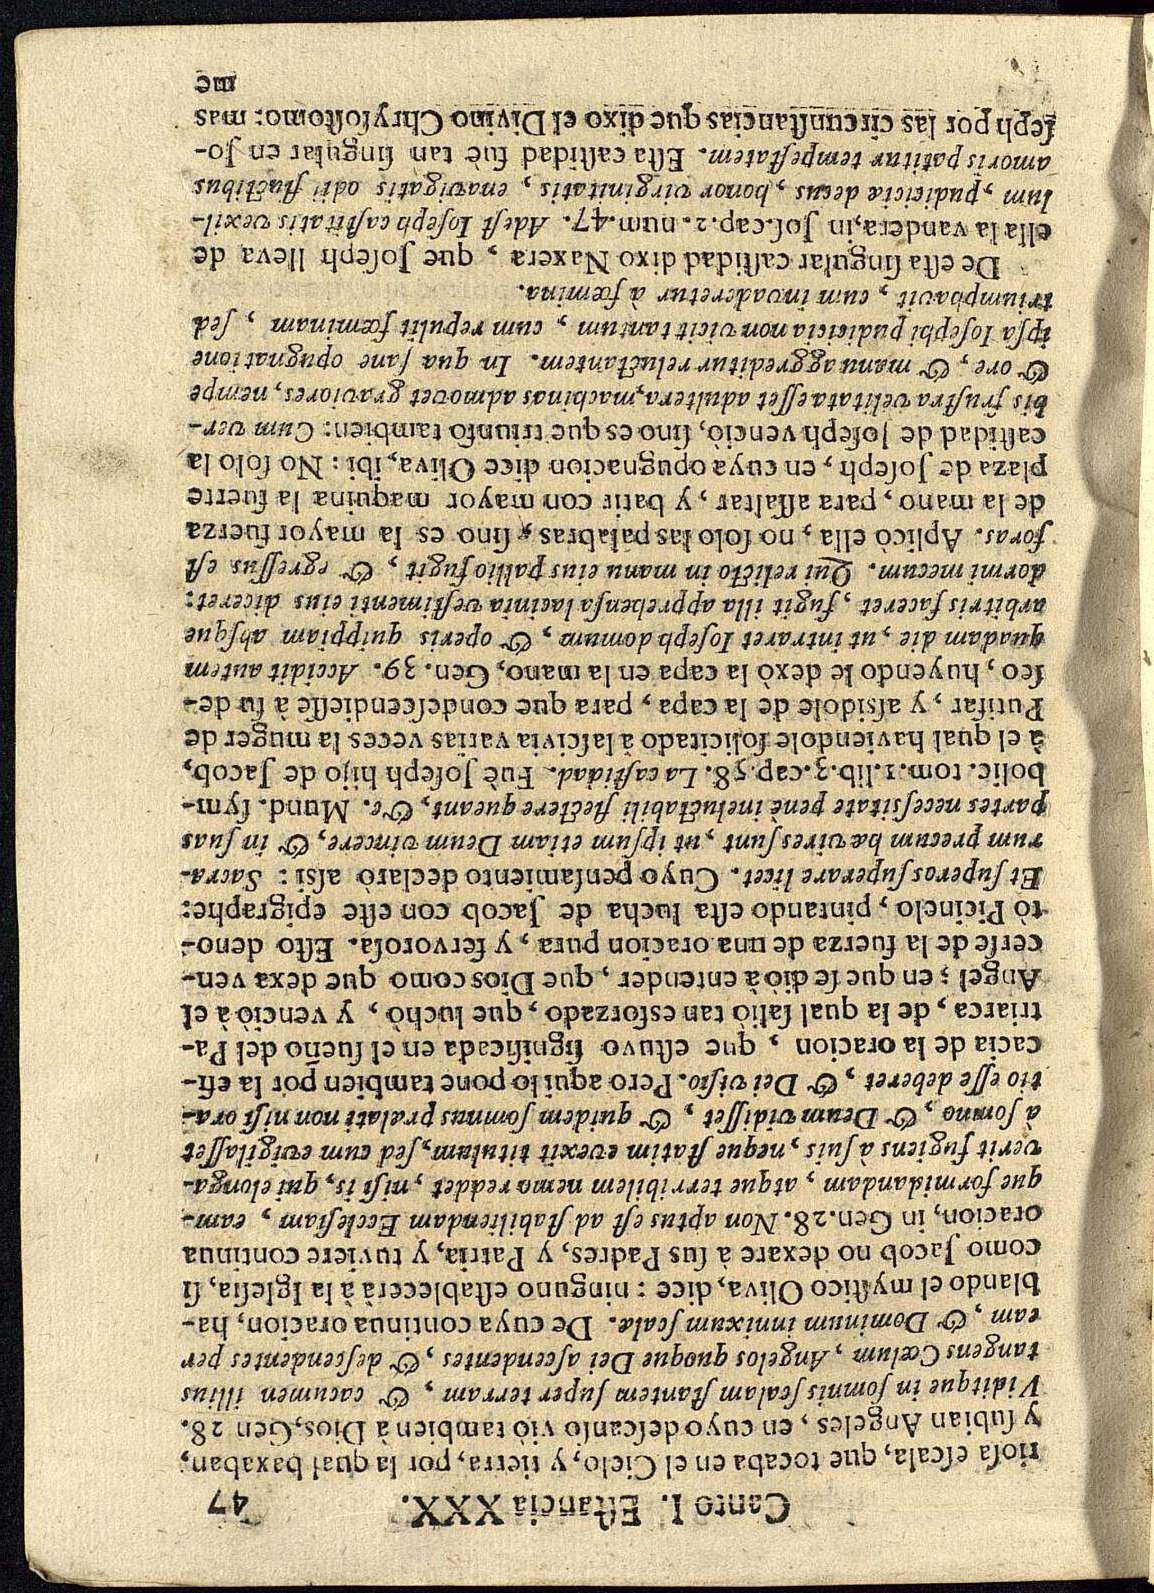 Canto I. Eſtancia XXX. 47
rioſa eſcala, que tocaba en el Cielo, y tierra, por la qual baxaban,
y ſubian Angeles, en cuyo deſcanſo viò tambien à Dios, Gen 28.
Viditque in ſomnis ſcalam ſtantem ſuper terram, & cacumen illius
tangens Cœlum, Angelos quoque Dei aſcendentes, & deſcendentes per
eam, & Dominum innixum ſcalæ. De cuya continua oracion, ha-
blando el myſtico Oliva, dice: ninguno eſtablecerà à la Igleſia, ſi
como Jacob no dexare à ſus Padres, y Patria, y tuviere continua
oracion, in Gen. 28. Non aptus eſt ad ſtabiliendam Eccleſiam, eam-
que formidandam, atque terribilem nemo reddet, niſi is, qui elonga-
verit fugiens à ſuis, neque ſtatim evexit titulum, ſed cum evigilaſſet
à ſomno, & Deum vidiſſet, & quidem ſomnus prælati non niſi ora-
tio eſſe deberet, & Dei viſio. Pero aqui lo pone tambien por la efi-
cacia de la oracion, que eſtuvo ſignificada en el ſueño del Pa-
triarca, de la qual ſaliò tan esforzado, que luchò, y venciò à el
Angel; en que ſe diò à entender, que Dios como que dexa ven-
cerſe de la fuerza de una oracion pura, y fervoroſa. Eſto deno-
tò Picinelo, pintando eſta lucha de Jacob con eſte epigraphe:
Et ſuperos ſuperare licet. Cuyo penſamiento declarò aſsi: Sacra-
rum precum hæ vires ſunt, ut ipſum etiam Deum vincere, & in ſuas
partes neceſsitate penè ineluctabili flectere queant, &c. Mund. ſym-
bolic. tom. 1. lib. 3. cap. 58. La caſtidad. Fuè Joſeph hijo de Jacob,
à el qual haviendole ſolicitado à laſcivia varias veces la muger de
Putifar, y aſsidole de la capa, para que condeſcendieſſe à ſu de-
ſeo, huyendo le dexò la capa en la mano, Gen. 39. Accidit autem
quadam die, ut intraret Ioſeph domum, & operis quippiam abſque
arbitris faceret, fugit illa apprehenſa lacinia veſtimenti eius diceret:
dormi mecum. Qui relicto in manu eius pallio fugit, & egreſſus eſt
foras. Aplicò ella, no ſolo las palabras, ſino es la mayor fuerza
de la mano, para aſſaltar, y batir con mayor maquina la fuerte
plaza de Joſeph, en cuya opugnacion dice Oliva, ibi: No ſolo la
caſtidad de Joſeph venciò, ſino es que triunfò tambien: Cum ver-
bis fruſtra velitata eſſet adultera, machinas admovet graviores, nempe
& ore, & manu aggreditur reluctantem. In qua ſane opugnatione
ipſa Ioſephi pudicicia non vicit tantum, cum repulit fœminam, ſed
triumphavit, cum invaderetur à fœmina.
De eſta ſingular caſtidad dixo Naxera, que Joſeph lleva de
ella la vandera, in Joſ. cap. 2. num. 47. Adeſt Ioſeph caſtitatis vexil-
lum, pudiciciæ decus, honor virginitatis, enavigatis odii fluctibus
amoris patitur tempeſtatem. Eſta caſtidad fuè tan ſingular en Jo-
ſeph por las circunſtancias que dixo el Divino Chryſoſtomo: mas
me